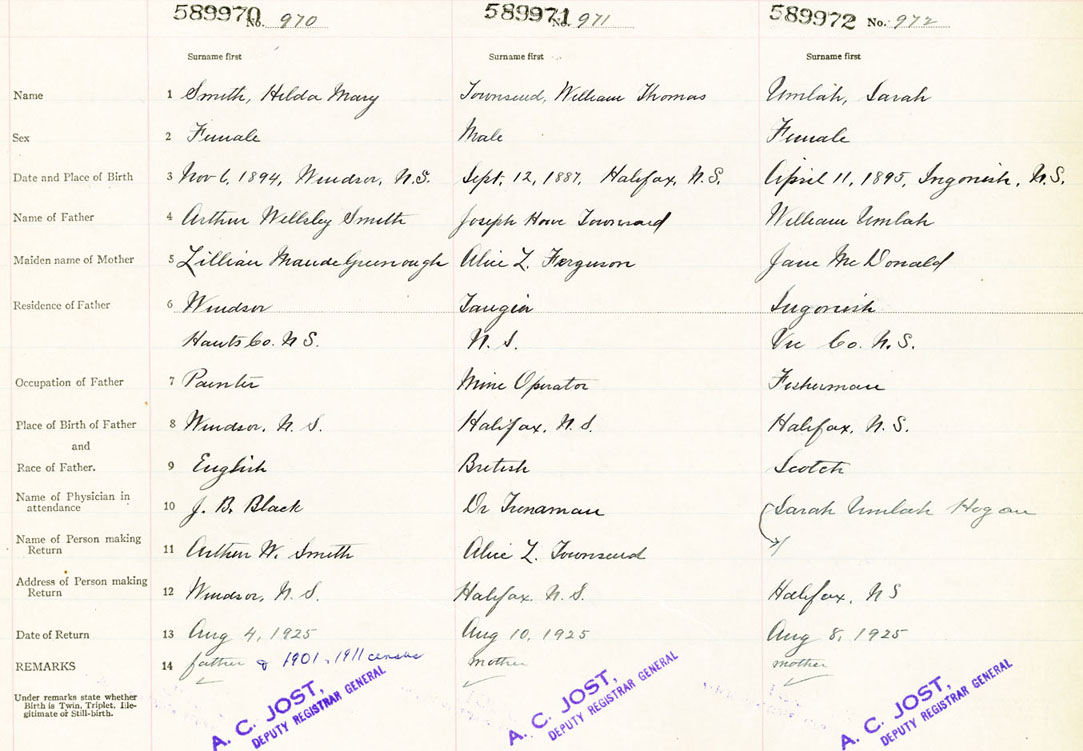 589970 No. 970 589971 No. 971 589972 No. 972
Surname first Surname first Surname first
Name 1 Smith, Hilda Mary Townsend, William Thomas Umlah, Sarah
Sex 2 Female Male Female
Date and Place of Birth 3 Nov 6, 1894, Windsor, N.S. Sept. 12, 1887, Halifax, N.S. April 11, 1895, Ingonish, N.S.
Name of Father 4 Arthur Wellsley Smith Joseph Howe Townsend William Umlah
Maiden name of Mother 5 Lillian Maude Greenough Alice L. Ferguson Jane McDonald
Residence of Father 6 Windsor Tangier Ingonish
Hants Co. N S. N. S. Vic Co. N.S.
Occupation of Father 7 Painter Mine Operator Fisherman
Place of Birth of Father 8 Windsor, N. S. Halifax, N. S. Halifax, N. S.
and
Race of Father. 9 English British Scotch
Name of Physician in
attendance 10 J. B. Black Dr Trenaman Sarah Umlah Hogan
Name of Person making
Return 11 Arthur W. Smith Alice L. Townsend
Address of Person making
Return 12 Windsor, N. S. Halifax. N. S. Halifax, N S
Date of Return 13 Aug 4, 1925 Aug 10, 1925 Aug 8, 1925
REMARKS 14 father & 1901, 1911 census mother mother
Under remarks state whether
Birth is Twin, Triplet, Ille-
gitimate or Still-birth.
A. C. JOST, A. C. JOST, A. C. JOST,
DEPUTY REGISTRAR GENERAL DEPUTY REGISTRAR GENERAL DEPUTY REGISTRAR GENERAL